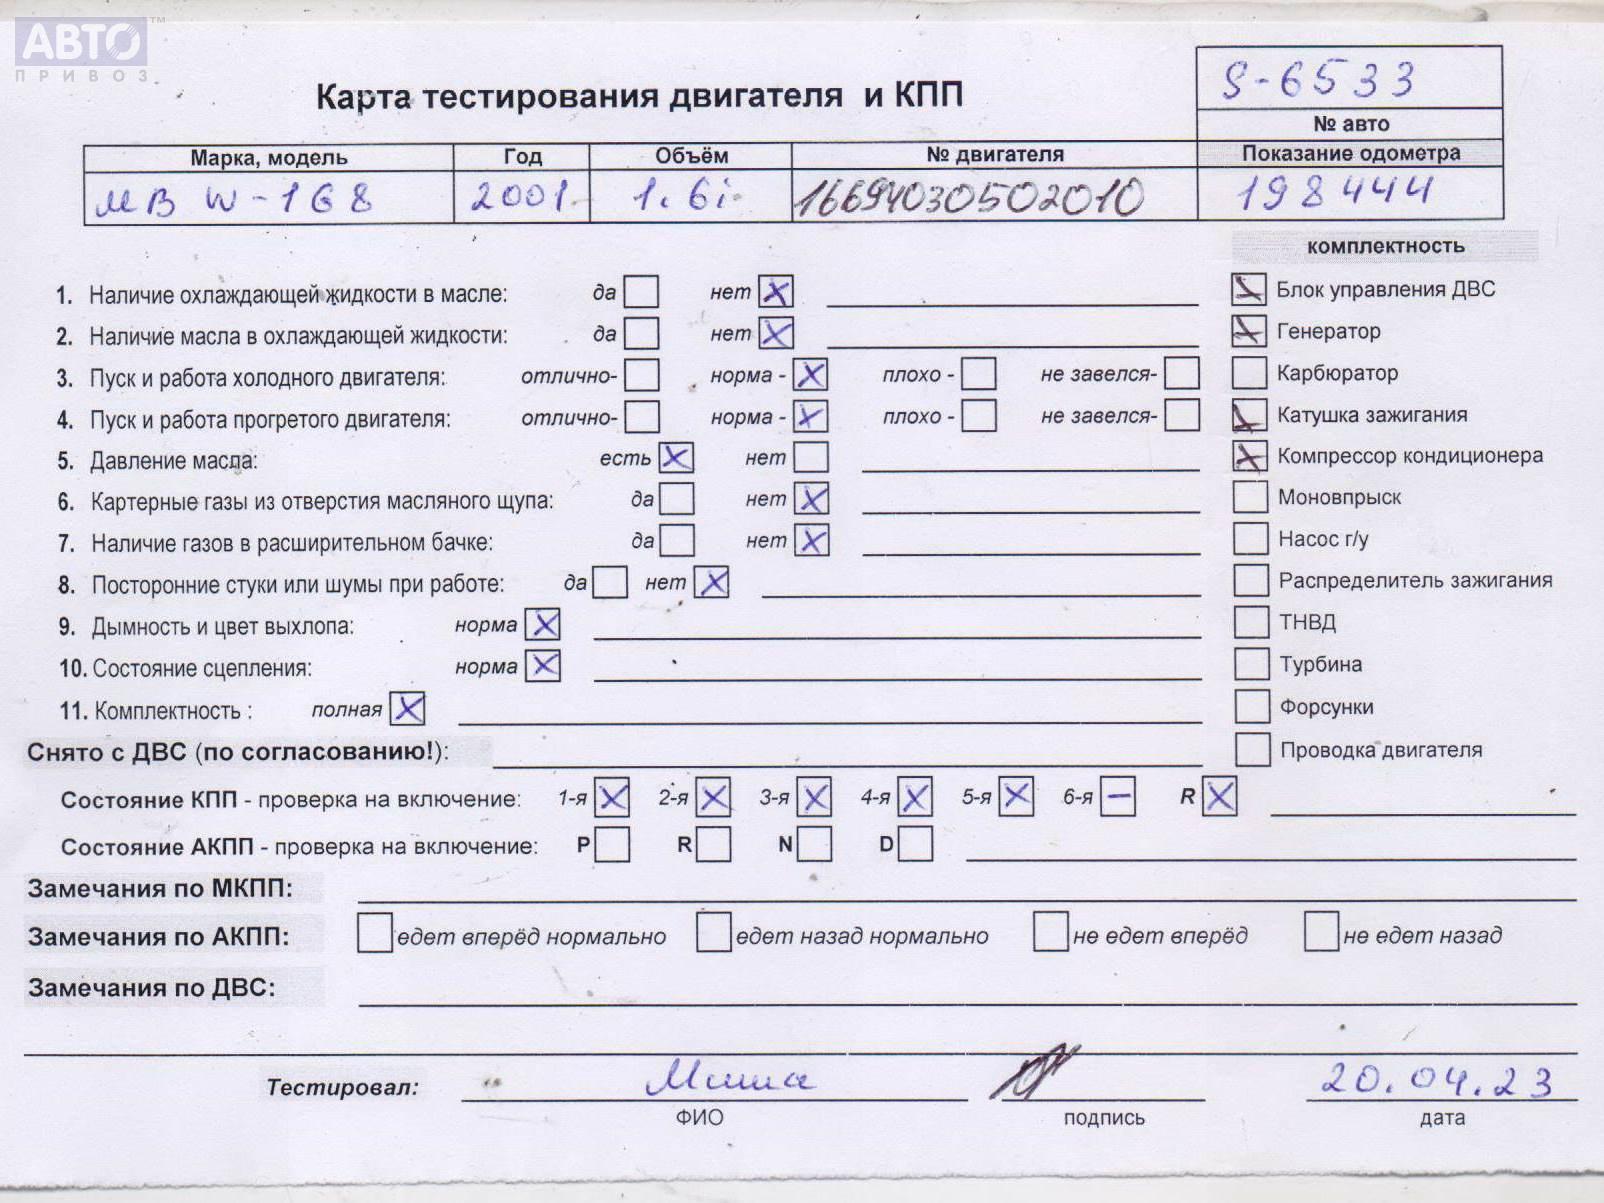 АВТО™
ПРИВОЗ
S-6533
Карта тестирования двигателя и КПП
№ авто
Марка, модель Год Объём № двигателя Показание одометра
MB W-168 2001 1.6i 16694030502010 198444
комплектность
1. Наличие охлаждающей жидкости в масле: да нет X Блок управления ДВС
2. Наличие масла в охлаждающей жидкости: да нет X Генератор
3. Пуск и работа холодного двигателя: отлично- норма - X плохо - не завелся- Карбюратор
4. Пуск и работа прогретого двигателя: отлично- норма - X плохо - не завелся- Катушка зажигания
5. Давление масла: есть X нет Компрессор кондиционера
6. Картерные газы из отверстия масляного щупа: да нет X Моновпрыск
7. Наличие газов в расширительном бачке: да нет X Насос г/у
8. Посторонние стуки или шумы при работе: да нет X Распределитель зажигания
9. Дымность и цвет выхлопа: норма X ТНВД
10. Состояние сцепления: норма X Турбина
11. Комплектность : полная X Форсунки
Снято с ДВС (по согласованию!): Проводка двигателя
Состояние КПП - проверка на включение: 1-я X 2-я X 3-я X 4-я X 5-я X 6-я – R X
Состояние АКПП - проверка на включение: P R N D
Замечания по МКПП:
Замечания по АКПП: едет вперёд нормально едет назад нормально не едет вперёд не едет назад
Замечания по ДВС:
Тестировал: Миша 20.04.23
ФИО подпись дата